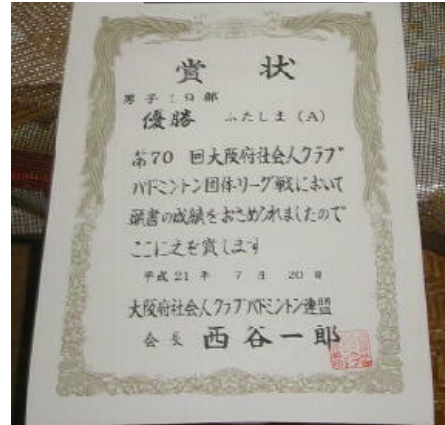 賞状
男子19部
優勝 ふたしま(A)
第70回大阪府社会人クラブ
バドミントン団体リーグ戦において
頭書の成績をおさめられましたので
ここに之を賞します
平成21年7月20日
大阪府社会人クラブバドミントン連盟
会長 西谷一郎